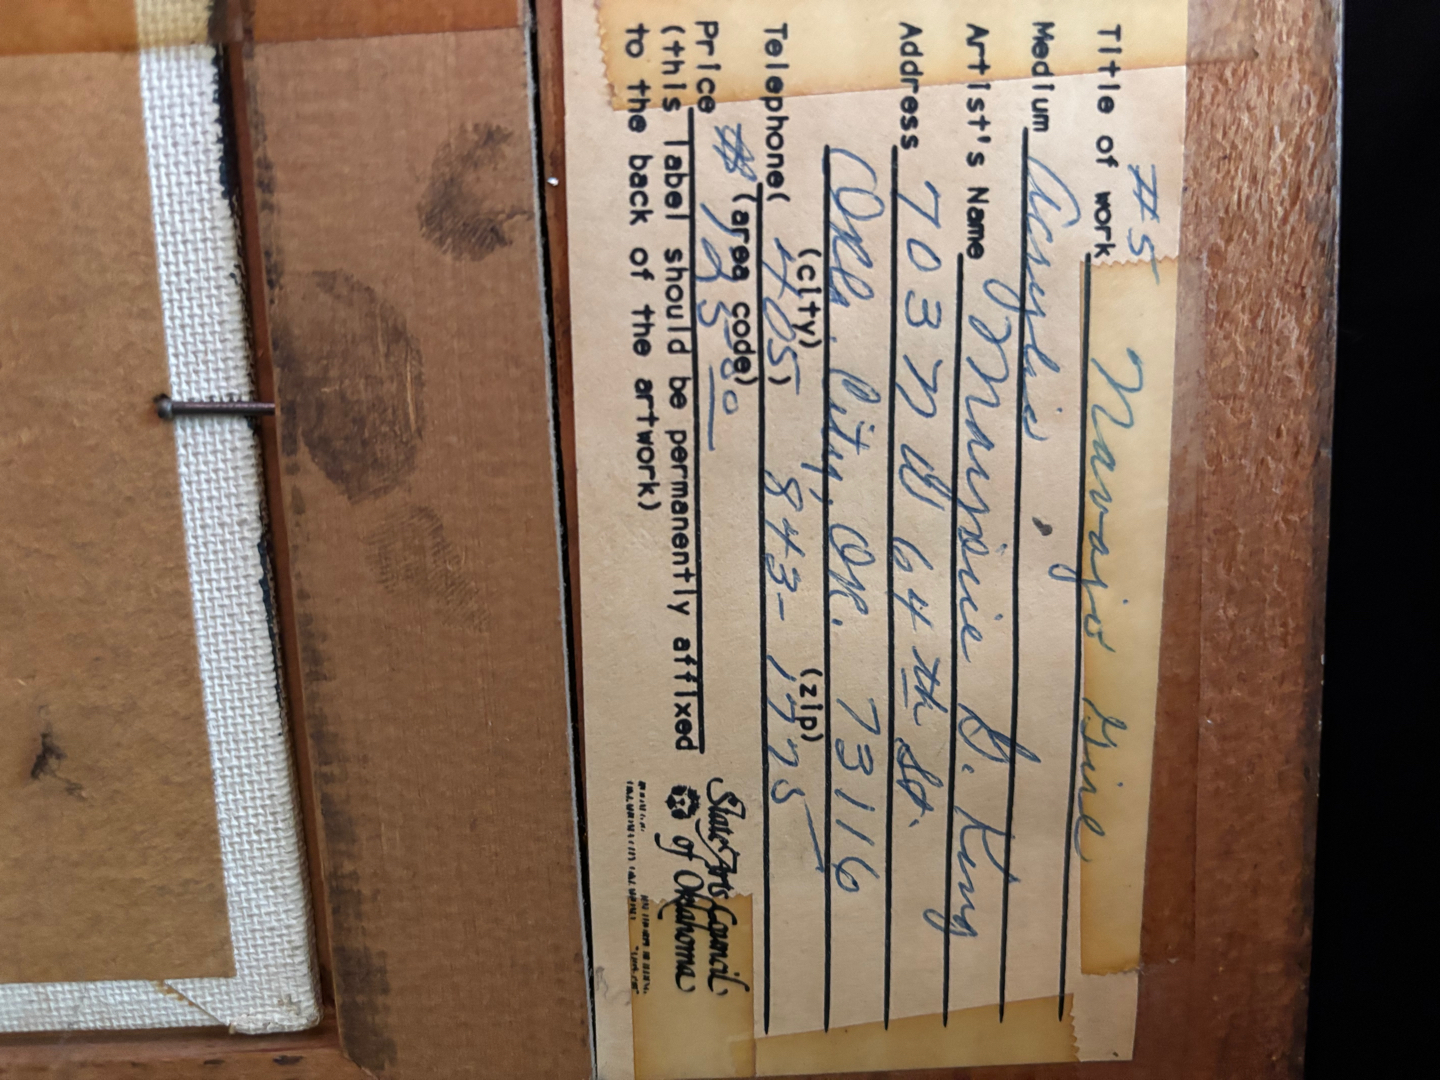 #5
Title of work Navajo Girl
Medium Acrylic
Artist's Name Mauriсe D. King
Address 7037 N W 64th St.
Okla. City, Ok. 73116
(city) (zip)
Telephone( 405) 843-1775
(area code)
Price
(this label should be permanently affixed
to the back of the artwork)
State Arts Council
of Oklahoma